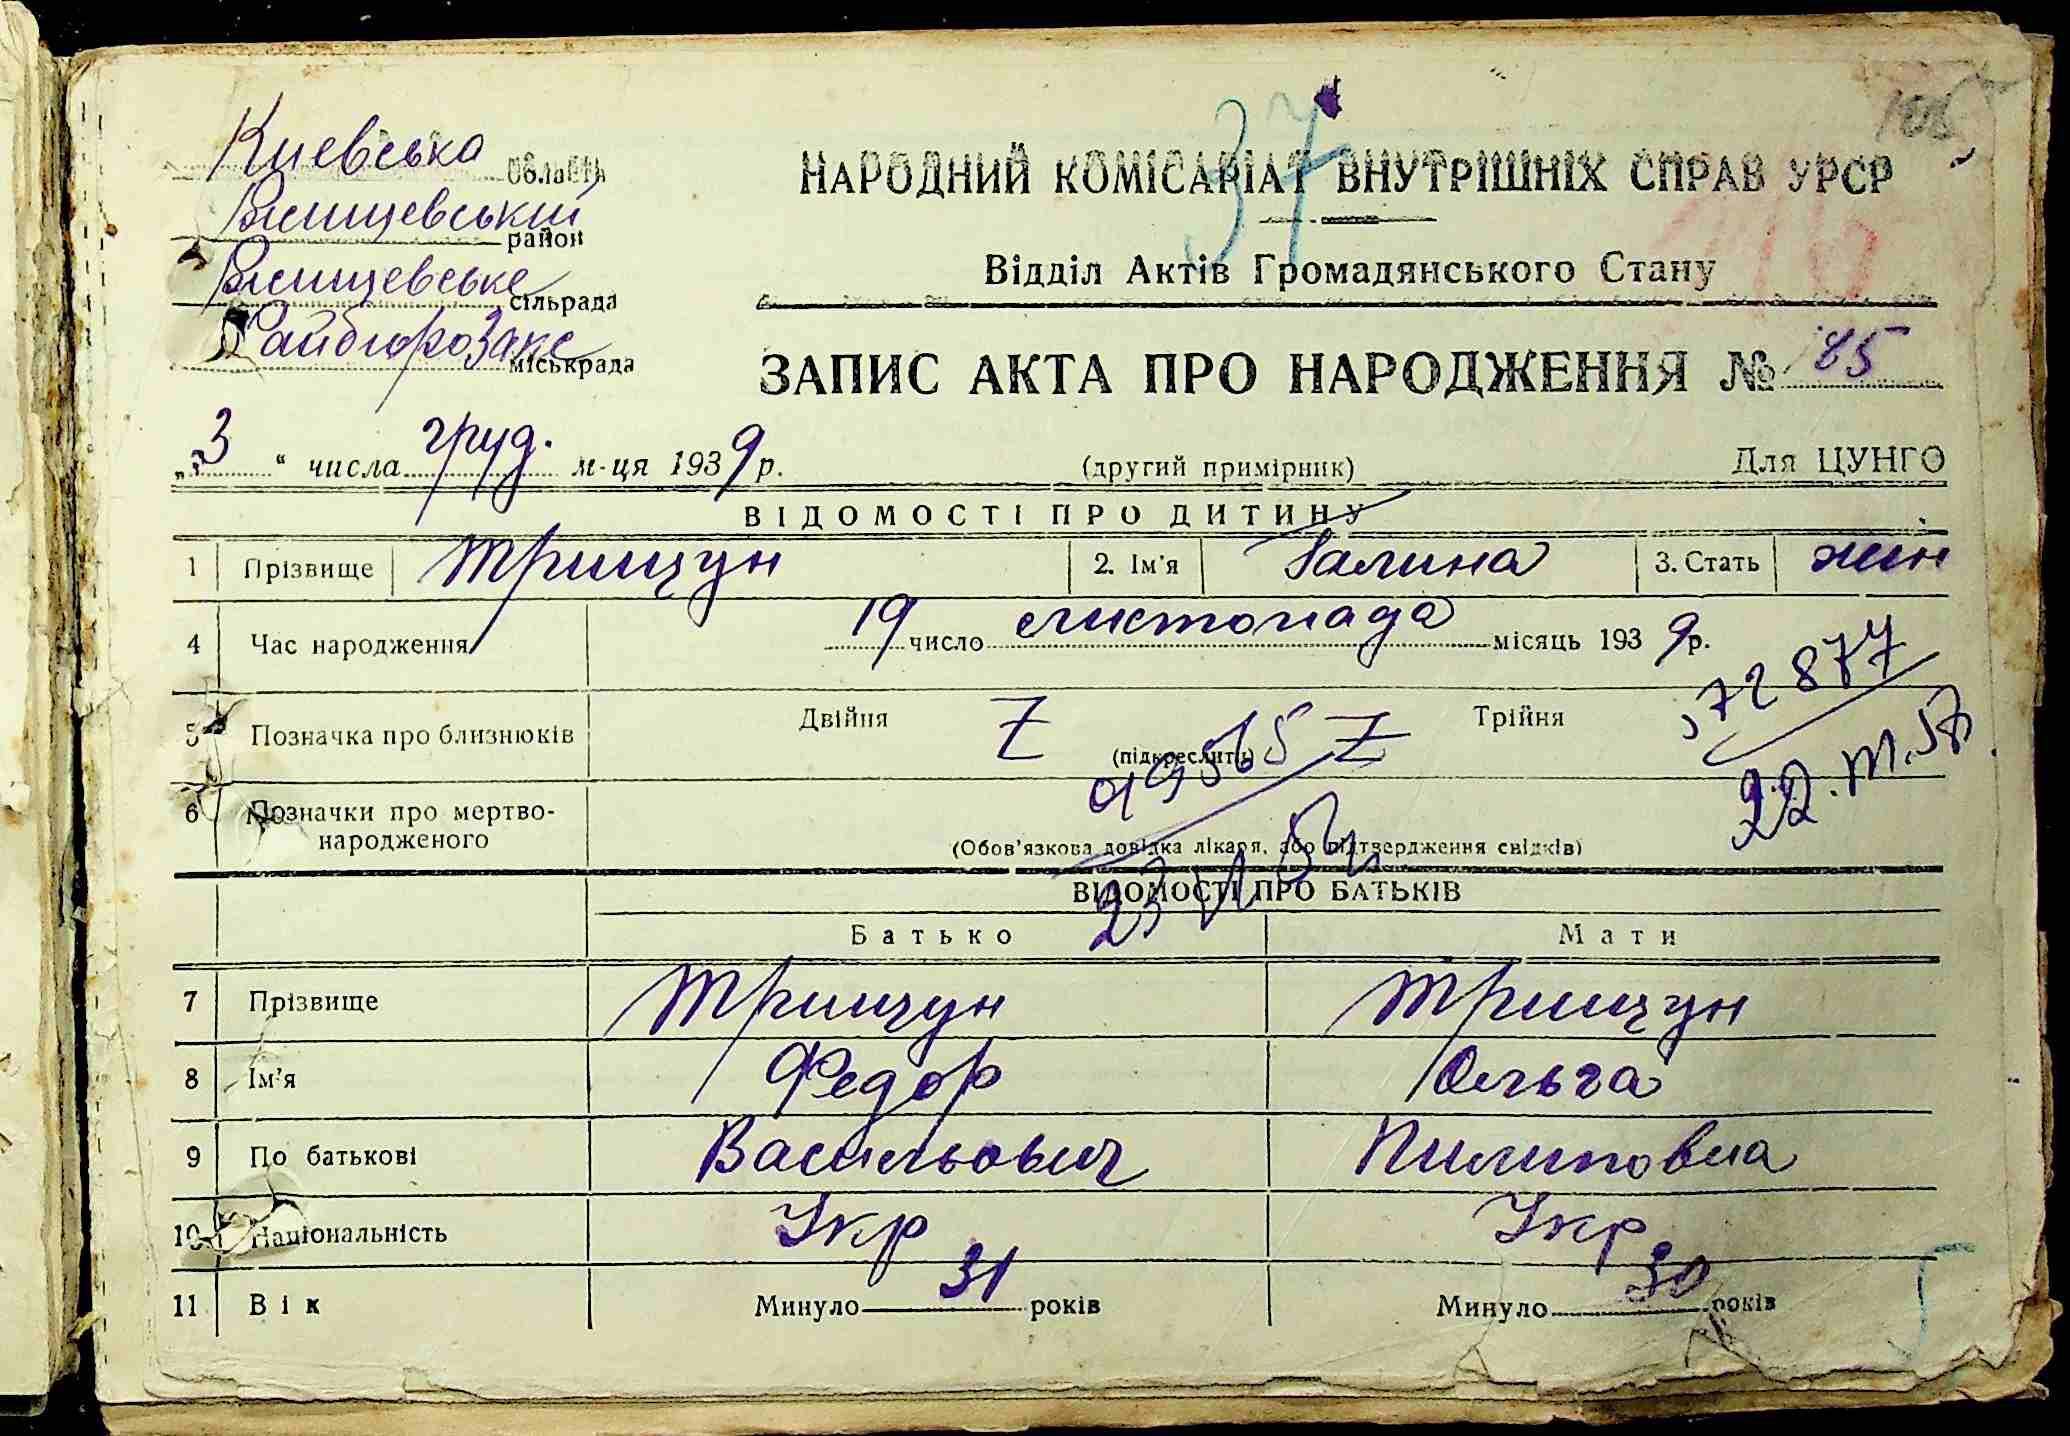 Киевська область
Вищевський район
Вищевське сільрада
Райбюро Загс міськрада
37
НАРОДНИЙ КОМІСАРІАТ ВНУТРІШНІХ СПРАВ УРСР
Відділ Актів Громадянського Стану
ЗАПИС АКТА ПРО НАРОДЖЕННЯ № 85
„3“ числа груд. м-ця 1939 р. (другий примірник) Для ЦУНГО
ВІДОМОСТІ ПРО ДИТИНУ
1 Прізвище Трищун 2. Ім'я Галина 3. Стать жін
4 Час народження 19 число листопада місяць 1939 р.
72877
5 Позначка про близнюків Двійня Z (підкреслить) Z Трійня
22.III.57
6 Позначки про мертвонародженого
(Обов'язкова довідка лікаря, або підтвердження свідків)
23 VI 52
ВІДОМОСТІ ПРО БАТЬКІВ
Батько Мати
7 Прізвище Трищун Трищун
8 Ім'я Федор Ольга
9 По батькові Васильович Пилиповна
10 Національність Укр Укр
11 Вік Минуло 31 років Минуло 30 років